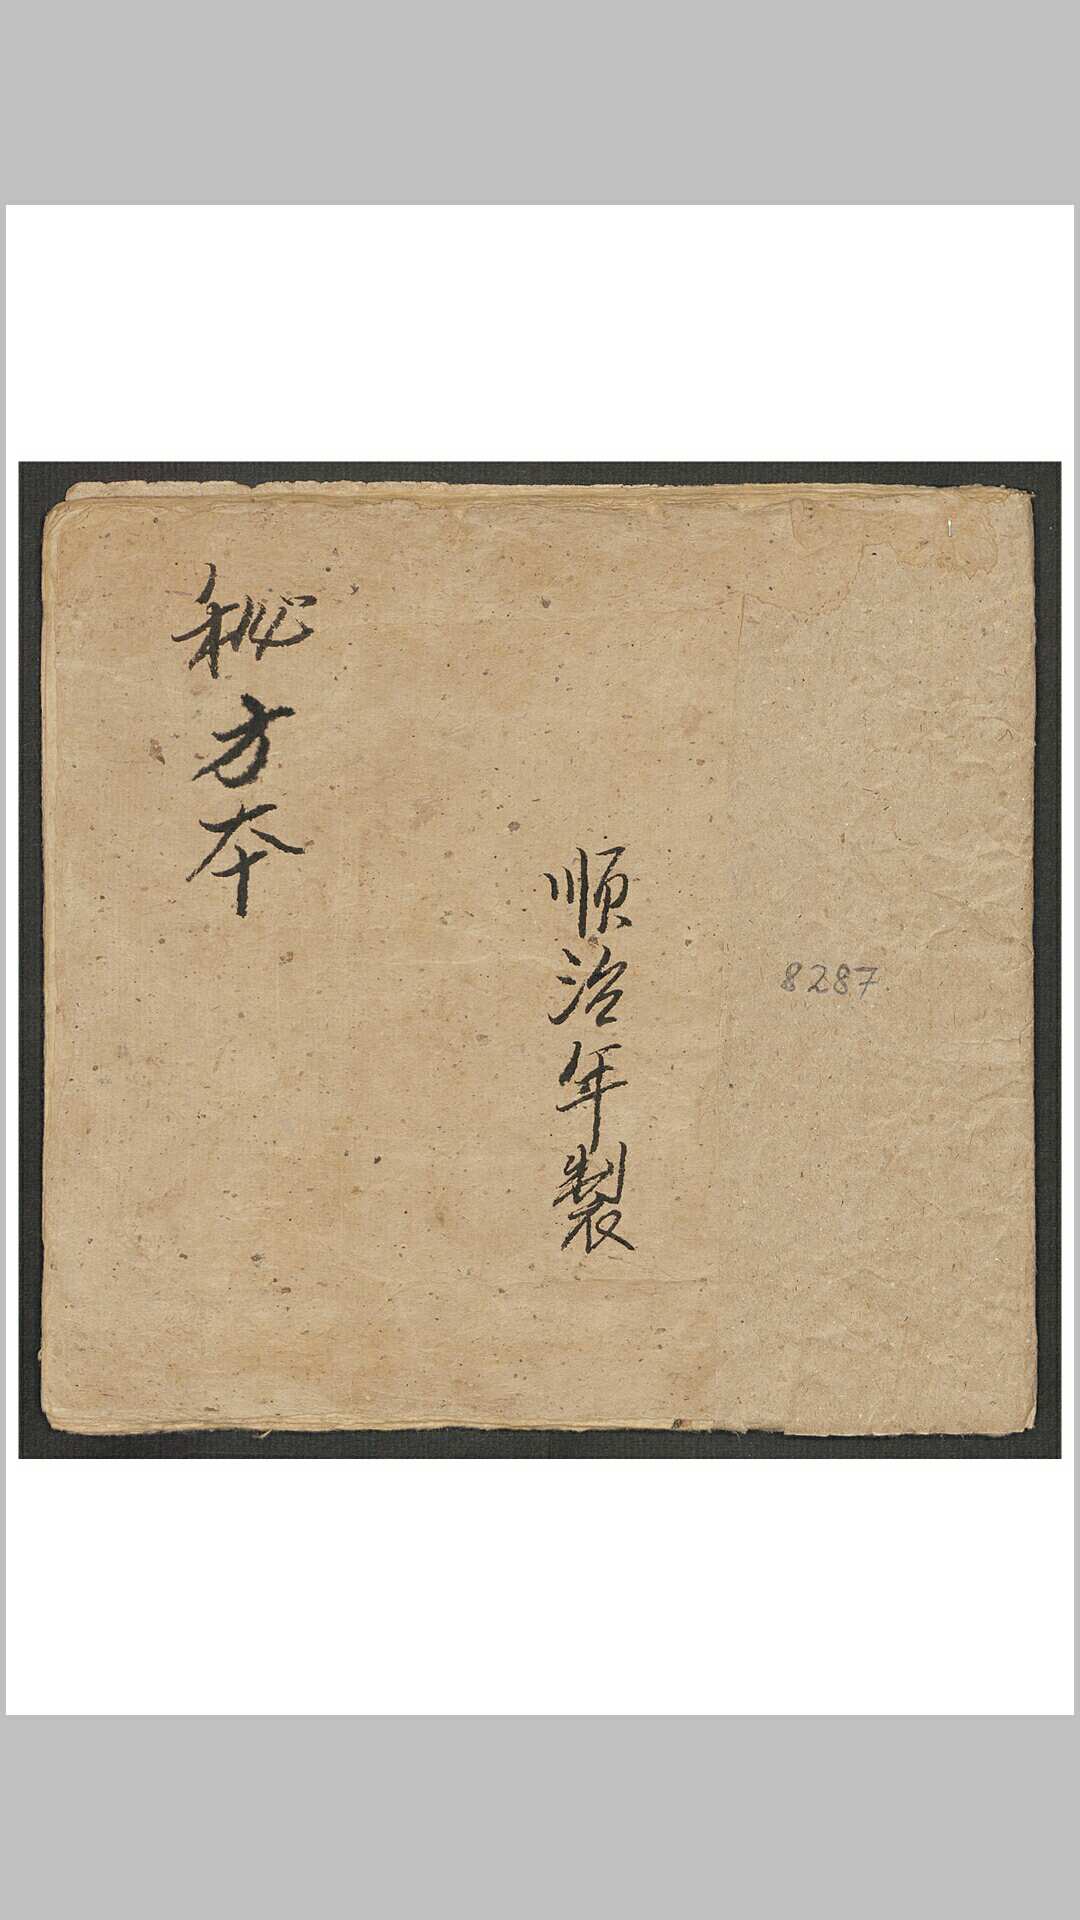 秘方本
顺治年製
8287